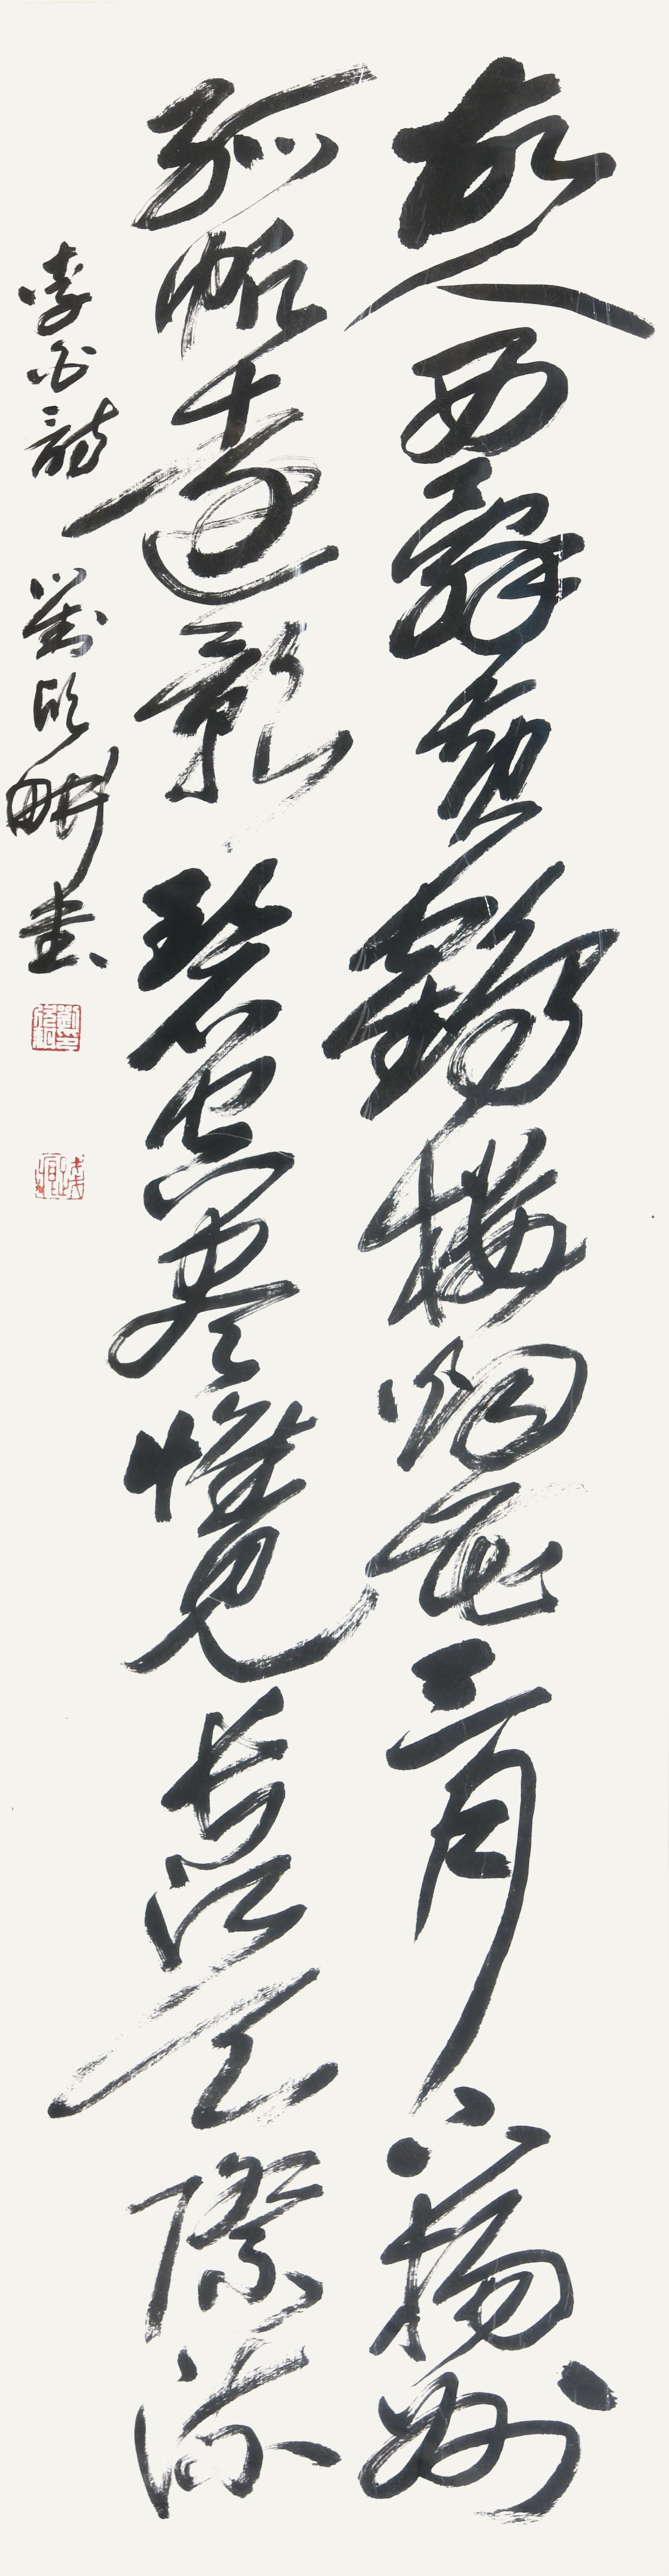 故人西辭黃鶴樓烟花三月下揚州
孤帆遠影碧空盡惟見長江天際流
李白詩 劉欣畊書